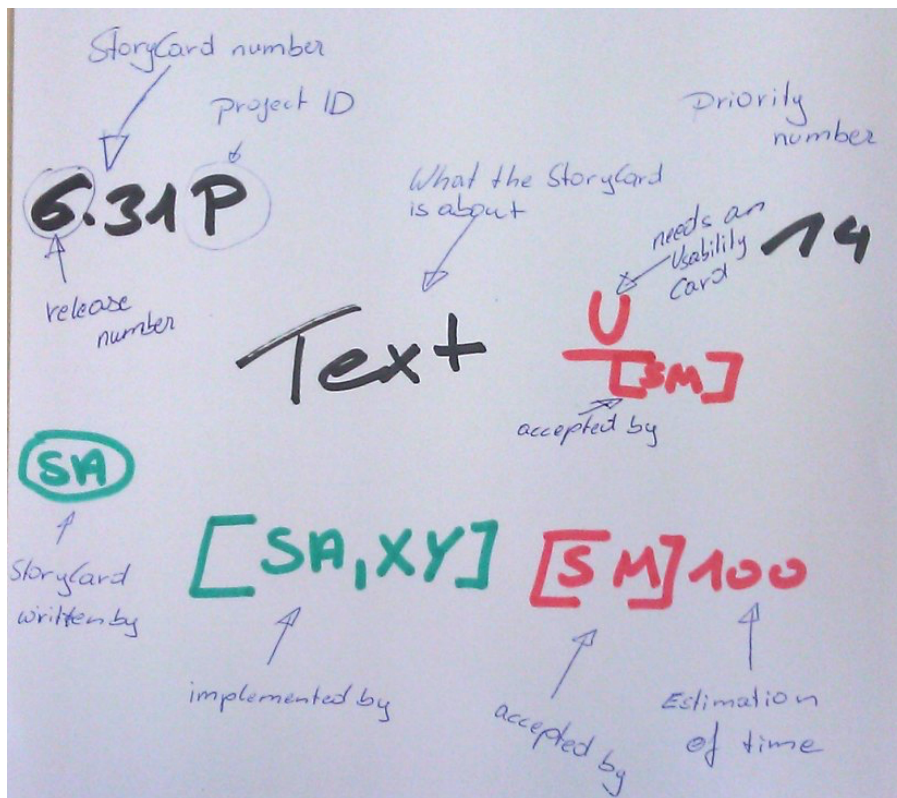 StoryCard number
project ID
Priority
number
6.31P
What the StoryCard
is about
needs an
Usability
Card
14
release
number
Text
U
[SM]
accepted by
SA
StoryCard
written by
[SA,XY]
[SM]100
implemented by
accepted
by
Estimation
of time